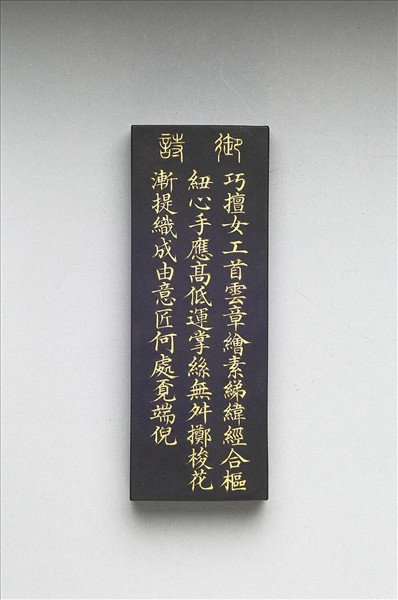 御詩
巧擅女工首雲章繪素綈緯經合樞
紐心手應髙低運掌絲無舛擲梭花
漸提織成由意匠何處覓端倪